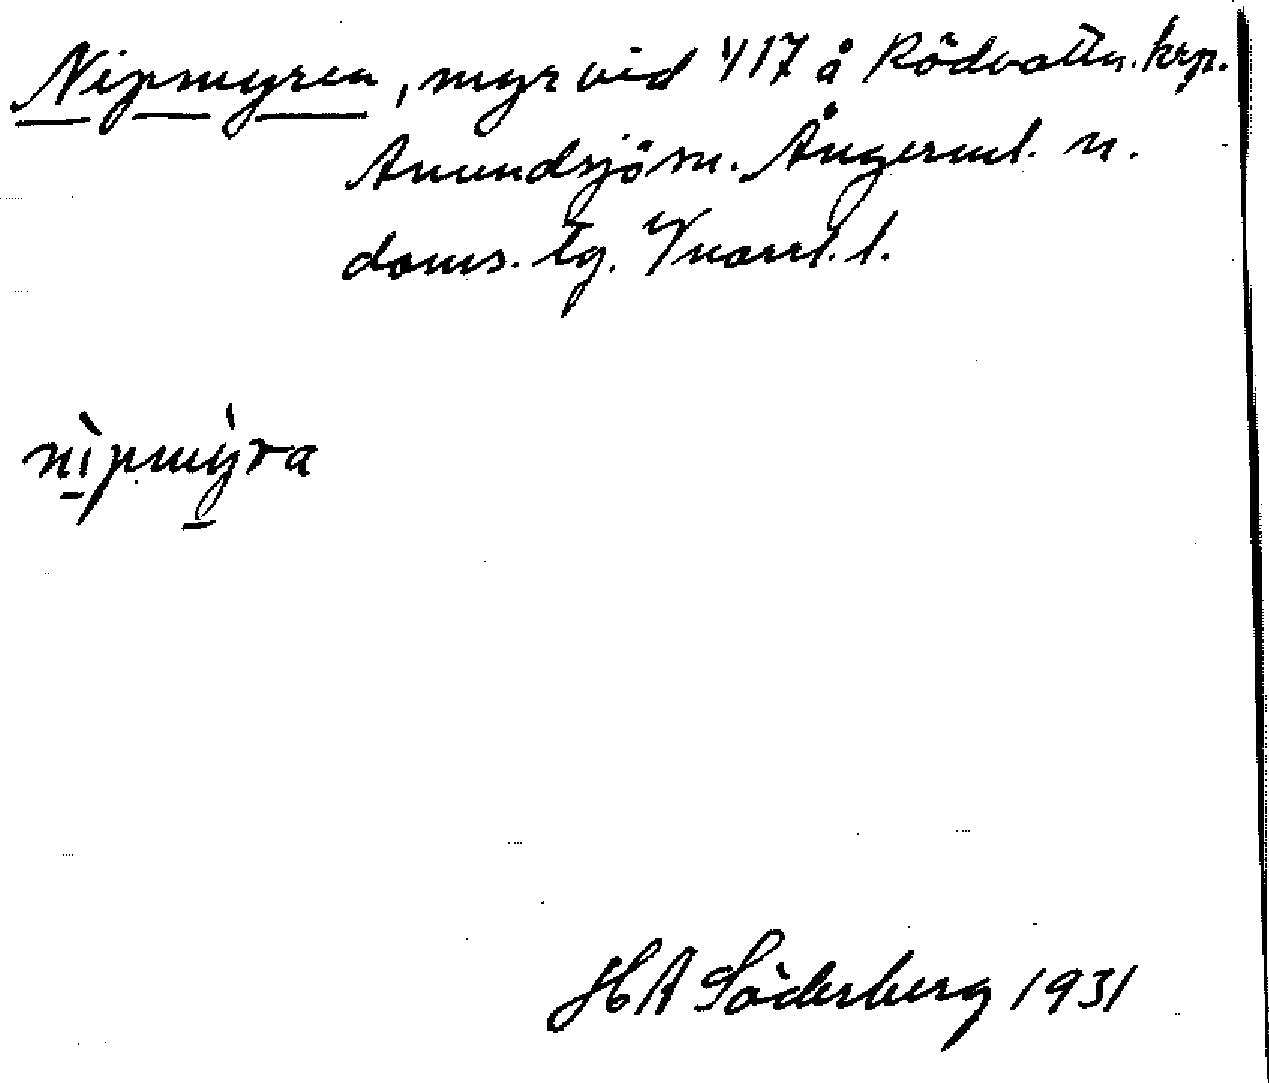 Nipmyren, myr vid 417 å Rödvattn. krp.
Anundsjö sn. Ångerml. n.
doms. lg. Vnorrl. l.
nìpmỳra
HA Söderberg 1931